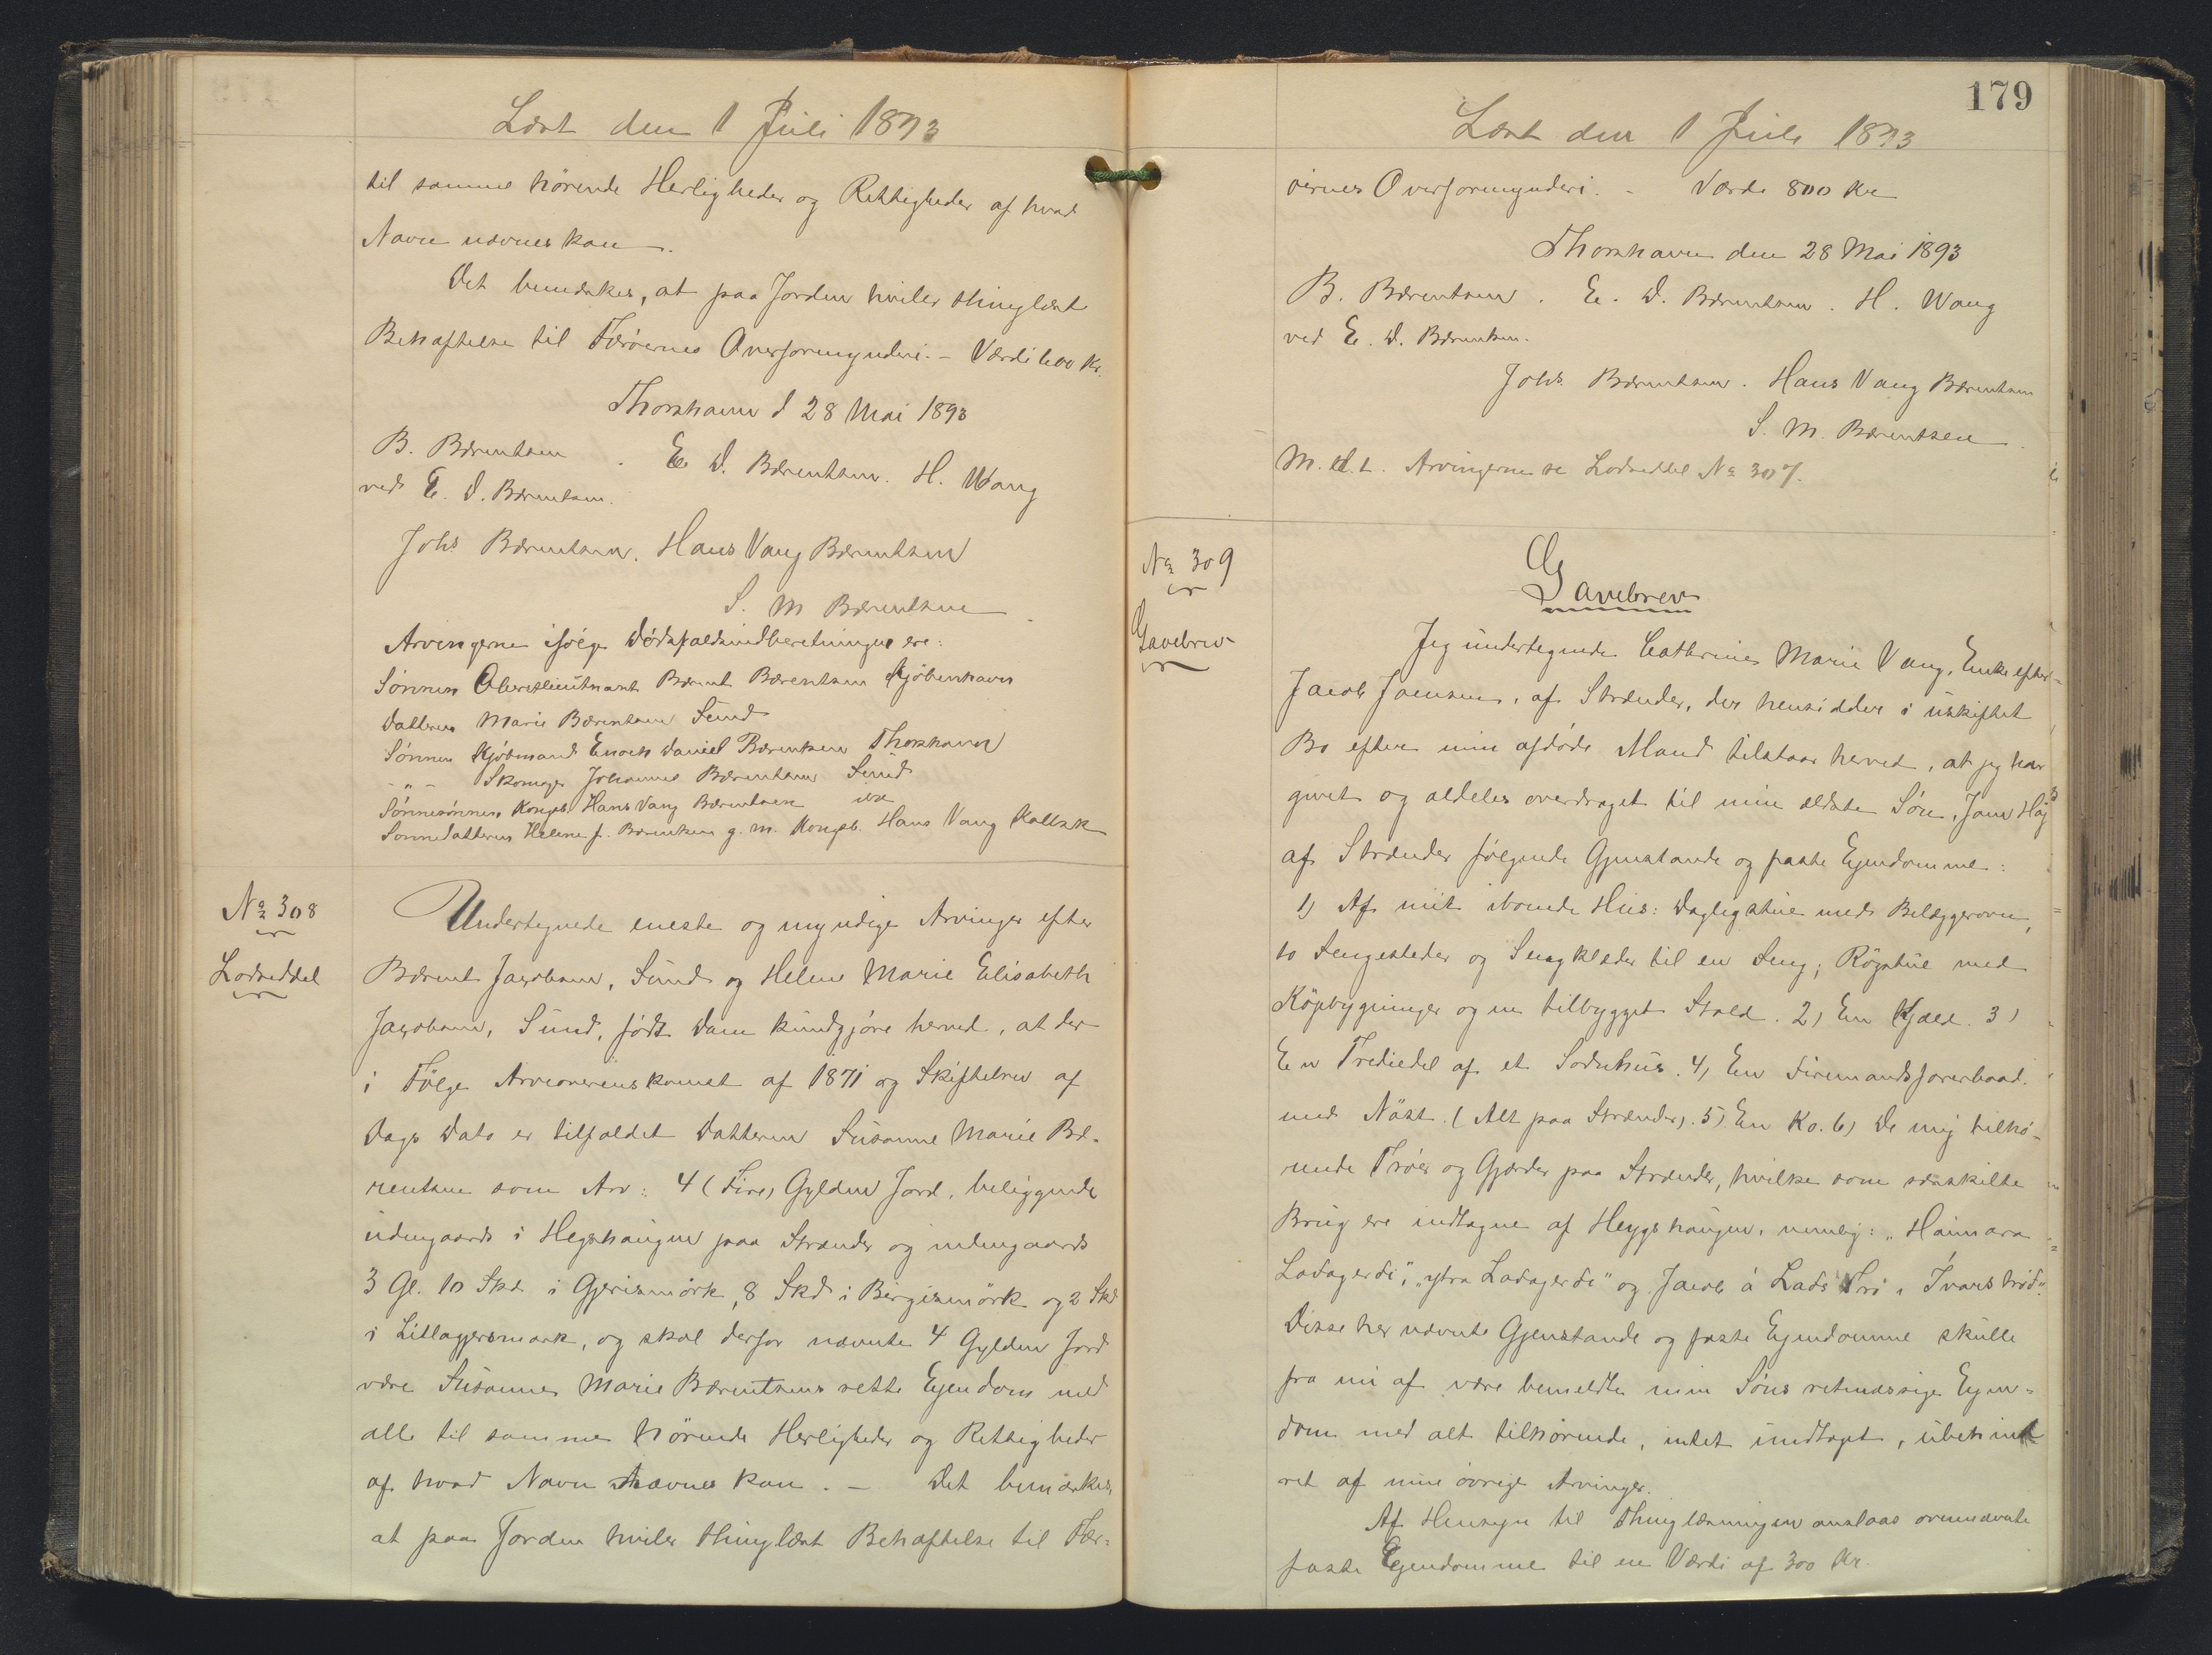 Læst den 1 Juli 1893
til samme hörende Herligheder og Rettigheder af hvad
Navn nævnes kan.
Det bemærkes, at paa Jorden hviler thinglæst
Behæftelse til Færöernes Overformynderi. - Værdi 600 Kr.
Thorshavn d 28 Mai 1893
B. Bærentsen . E. D. Bærentsen. H. Wang
ved E. D. Bærentsen.
Johs Bærentsen. Hans Vang Bærentsen
S. M Bærentsen
Arvingerne ifölge Dödsfaldsindberetningen ere:
Sönnen Oberstlieutnant Bærent Bærentsen Kjöbenhavn
Datteren Marie Bærentsen Sund
Sönnen Kjöbmand Enoch Daniel Bærentsen Thorshavn
- " - Skomager Johannes Bærentsen Sund
Sönnesönnen Kongsb. Hans Vang Bærentsen ibd
Sönnedatteren Helene f. Bærentsen g. m. Kongsb. Hans Vang Kalbak
No 308
Lodseddel
Undertegnede eneste og myndige Arvinger efter
Bærent Jacobsen, Sund og Helene Marie Elisabeth
Jacobsen, Sund, födt Dam kundgjöre herved, at der
i Fölge Arveoverenskomst af 1871 og Skiftebrev af
Dags Dato er tilfaldet Datteren Susanne Marie Bæ-
rentsen som Arv: 4 (Fire) Gylden Jord, beliggende
udengaards i Hegshaugen paa Strænder og indengaards
3 Gl. 10 Skd i Gjerismörk, 8 Skd i Birgismörk og 2 Skd
i Litlagersmark, og skal derfor nævnte 4 Gylden Jord
være Susanne Marie Bærentsens rette Ejendom med
alle til samme hörende Herligheder og Rettigheder
af hvad Navn nævnes kan. - Det bemærkes,
at paa Jorden hviler thinglæst Behæftelse til Fær-
179
Læst den 1 Juli 1893
öernes Overformynderi. - Værdi 800 Kr
Thorshavn den 28 Mai 1893
B. Bærentsen . E. D. Bærentsen . H. Wang
ved E. D. Bærentsen.
Johs. Bærentsen. Hans Vang Bærentsen
S. M. Bærentsen.
Arvingerne se Lodseddel No 307.
No 309
Gavebrev
Gavebrev
Jeg undertegnede Cathrine Marie Vang, Enke efter
Jacob Joensen, af Strænder, der hensidder i uskiftet
Bo efter min afdöde Mand tilstaar herved, at jeg har
givet og aldeles overdraget til min ældste Sön, Joen Höj
af Strænder fölgende Gjenstande og faste Ejendomme:
1) Af mit iboende Hus: Dagligstue med Bilæggerovn,
to Sengesteder og Sengklæder til en Seng; Rögstue med
Köpbygninger og en tilbygget Stald. 2) En Kjæld. 3)
En Trediedel af et Sodnhus. 4) En Firemandsfarerbaad.
med Nöst. (Alt paa Strænder). 5) En Ko. 6) De mig tilhö-
rende Tröer og Gjærder paa Strænder, hvilke som særskilte
Brug ere indtagne af Heygshaugen, nemlig: "Haimara
Ladagerdi", "ytra Ladagerdi" og Jacob á Lads Trö i Ivarströd".
Disse her nævnte Gjenstande og faste Ejendomme skulle
fra nu af være bemeldte min Söns retmæssige Ejen-
dom med alt tilhörende, intet undtaget, ubehind-
ret af mine övrige Arvinger.
Af Hensyn til Thinglæsningen anslaas ovennævnte
faste Ejendomme til en Værdi af 300 Kr.